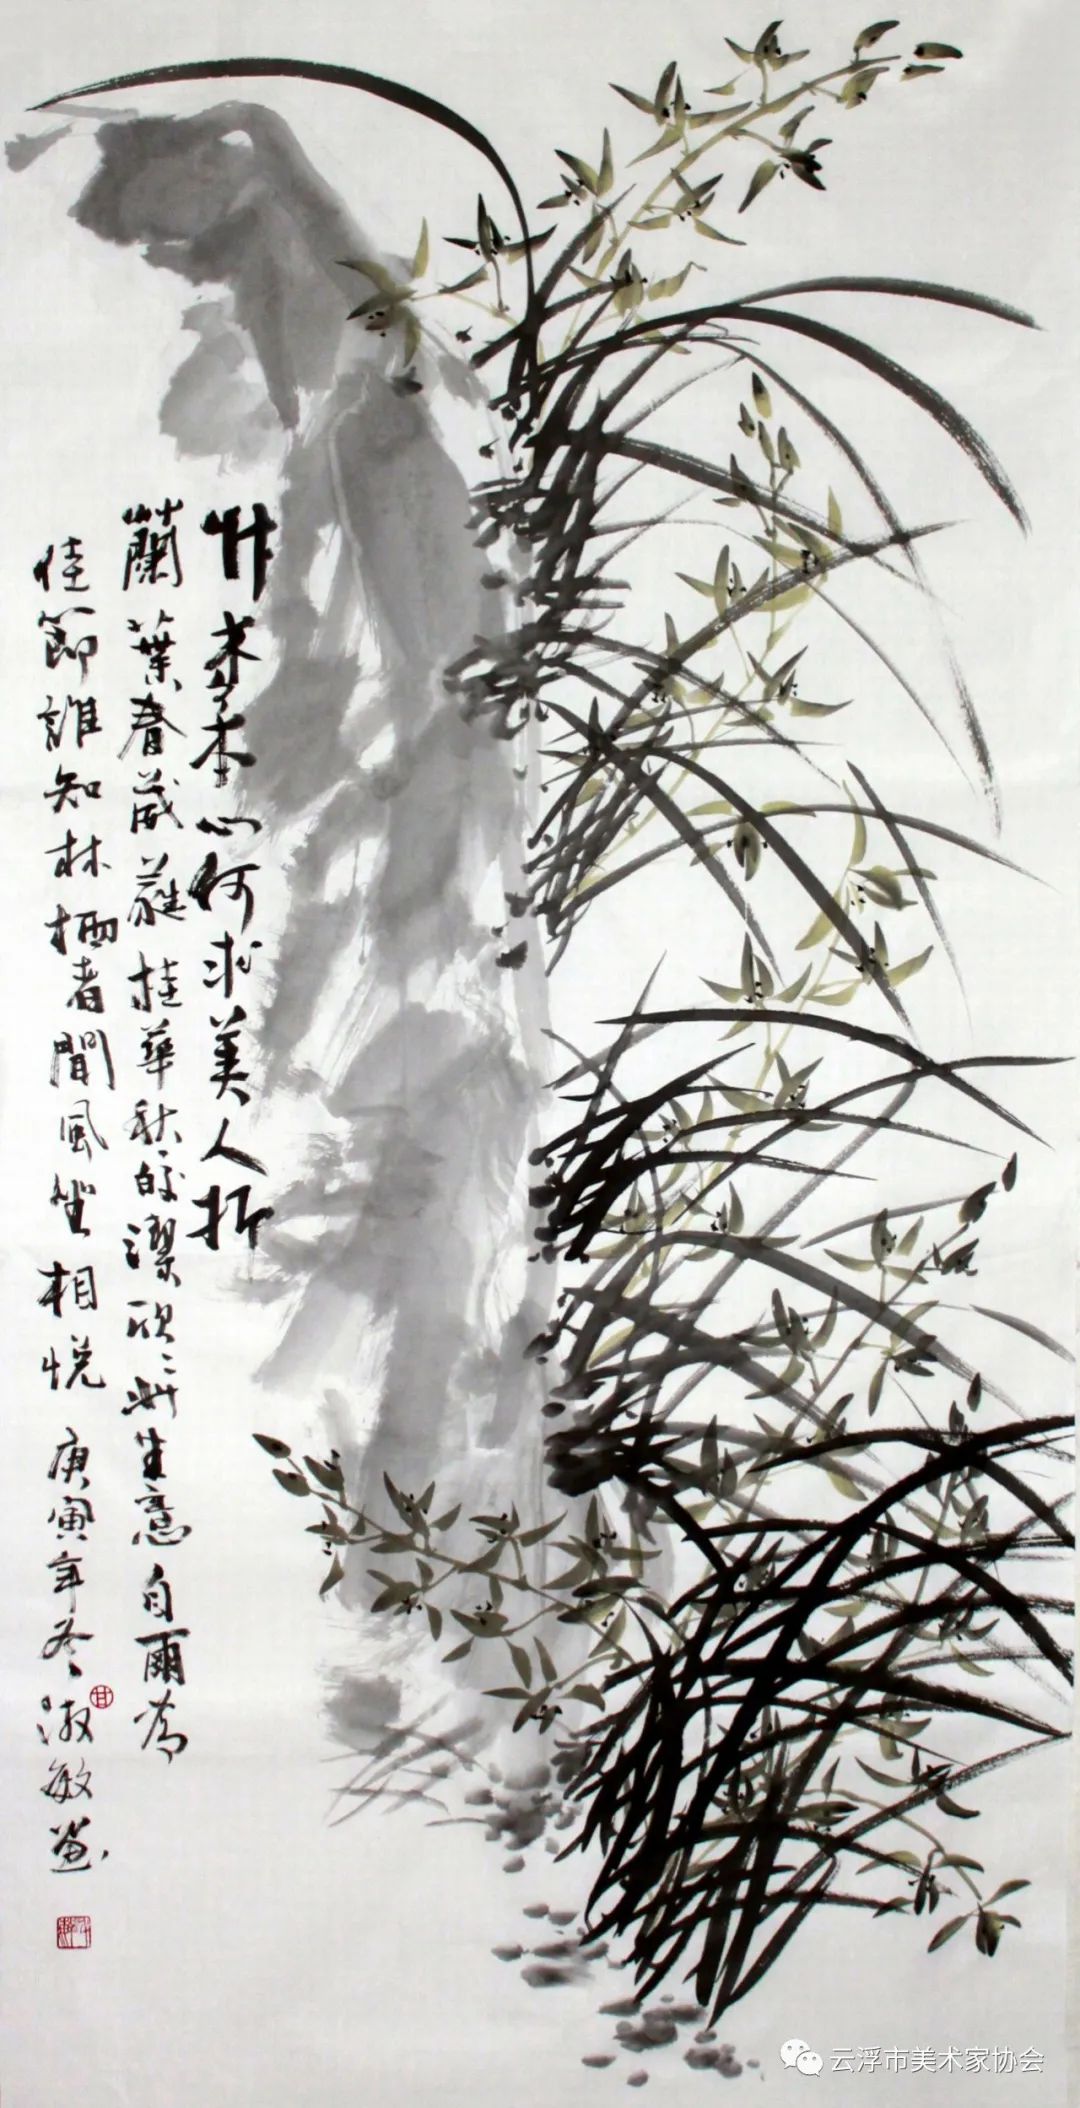 艸木有本心何求美人折
蘭葉春葳蕤桂華秋皎潔欣〻此生意自爾為
佳節誰知林栖者聞風坐相悅 庚寅年冬淑敏畫
甘
云浮市美术家协会